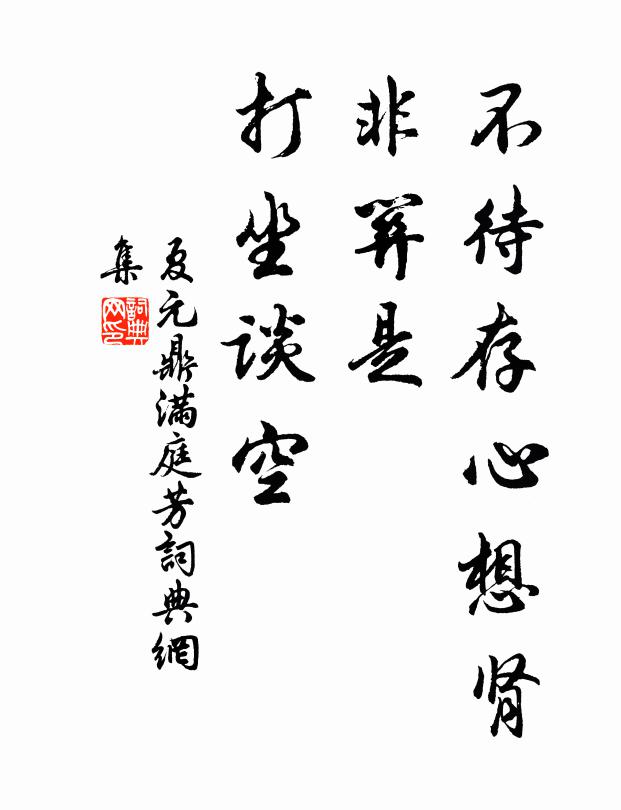 不待存心想肾
非關是
打坐談空
夏元鼎滿庭芳詞典網
集
詞典
网印